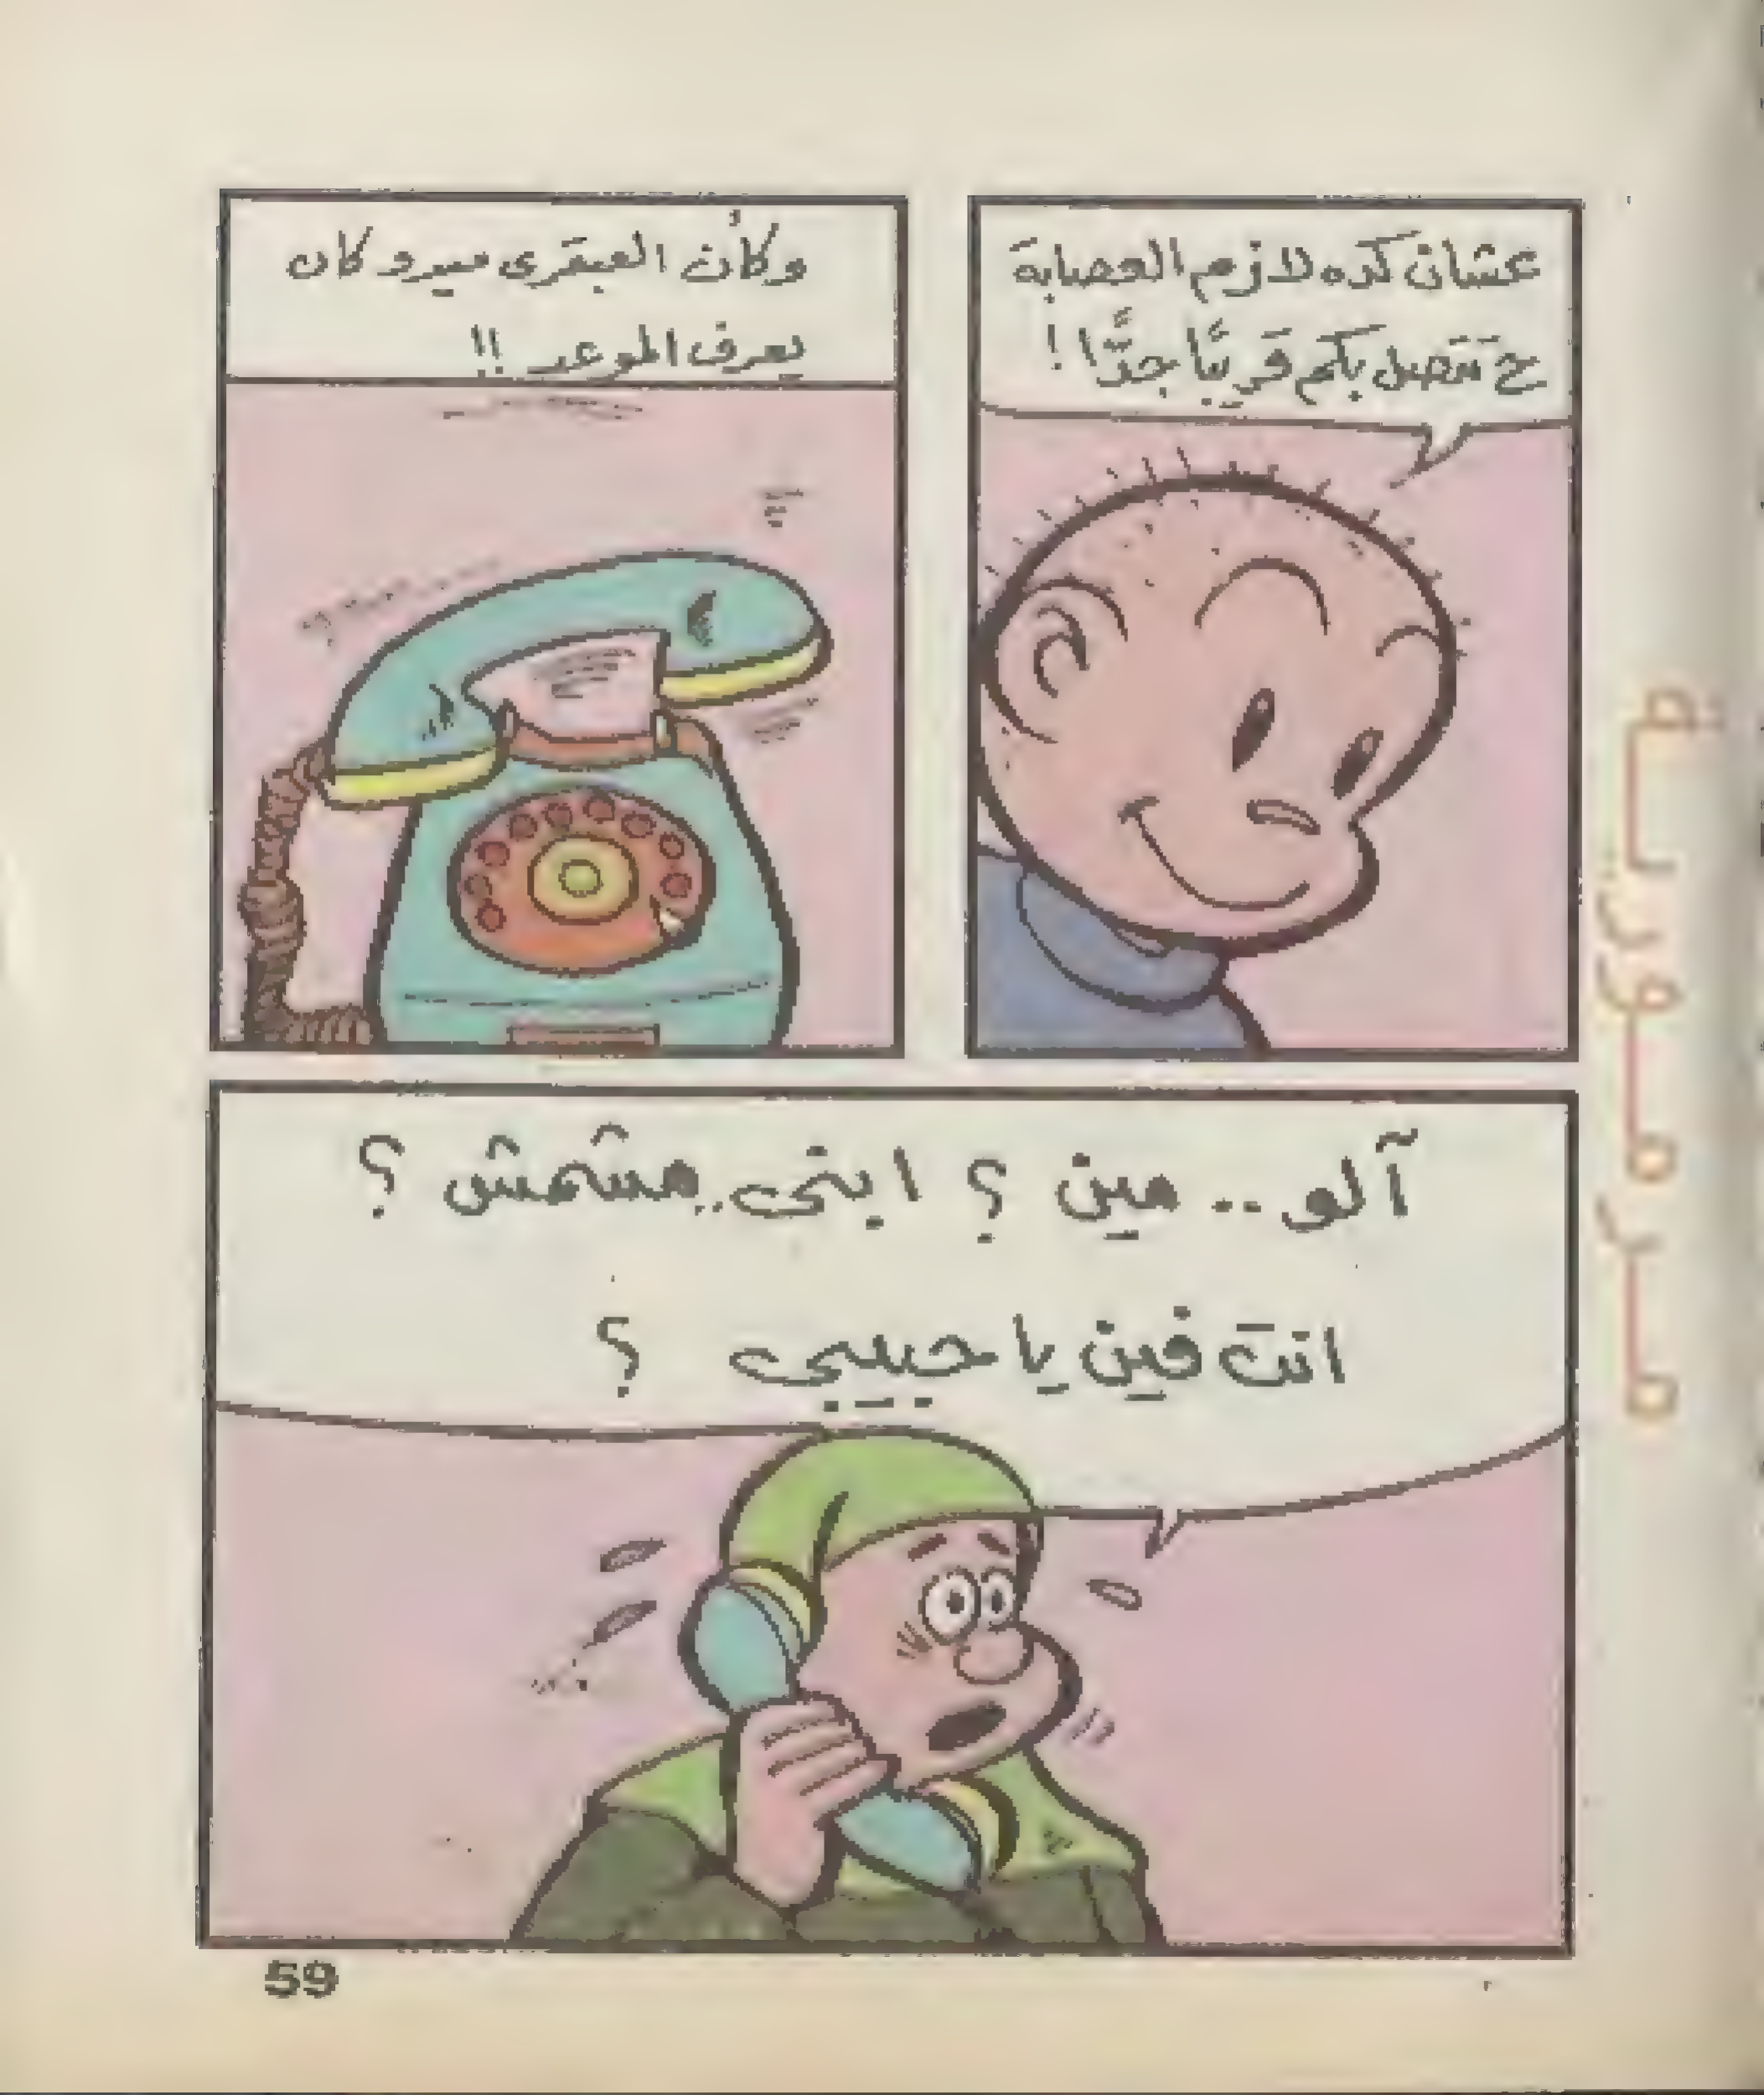 عشان كده لازم العصابة
ح تتصل بكم قريبًا جدًّا !
وكأن العبقرى ميدو كان
يعرف الموعد !!
آلو .. مين ؟ ابنى .. مشمش ؟
انت فين يا حبيبي ؟
مرمورية
59